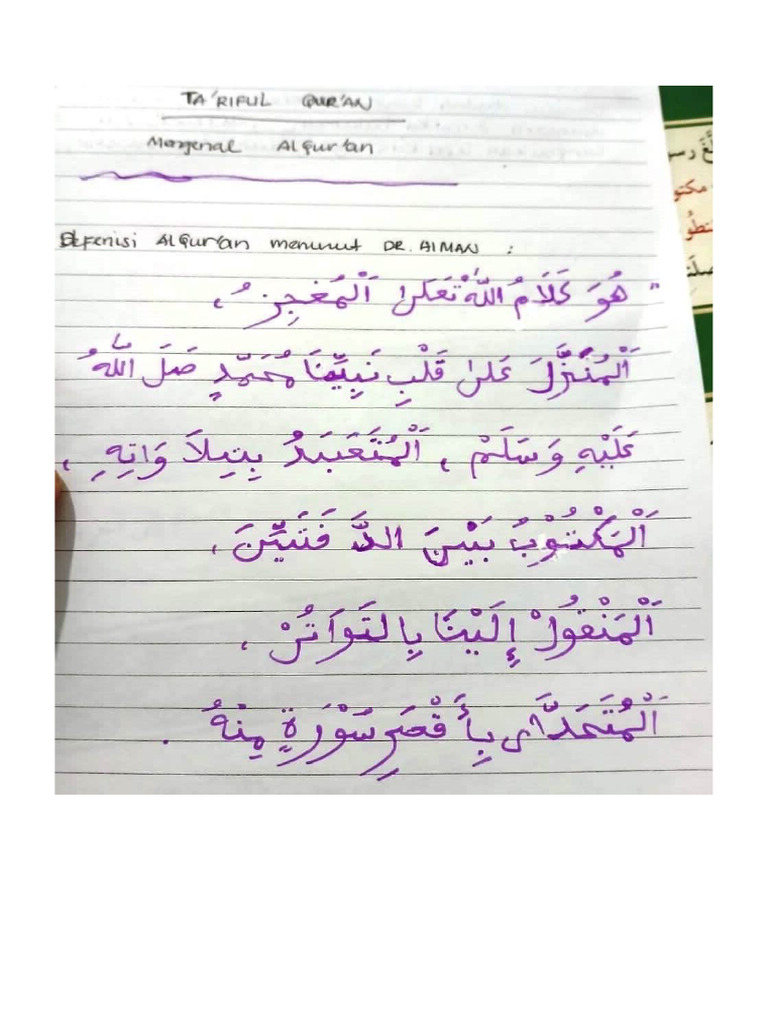 TA'RIFUL QUR'AN
Mengenal AlQur'an
Defenisi AlQur'an menurut DR. AIMAN :
" هُوَ كَلَامُ اللّٰهُ تَعَالَىٰ اَلْمُعْجِزُ ،
اَلْمُنَزَّلَ عَلىٰ قَلْبِ نَبِيِّنَا مُحَمَّدٍ صَلَ اللّٰهُ
عَلَيْهِ وَسَلَمْ ، اَلْمُتَعَبَدُ بِتِيلَا وَاتِهِ ،
اَلْمَكْتُوْبُ بَيْنَ الدَّ فَتَيِّنَ ،
اَلْمَنْقُولْ إِلَيْنَا بِالتَوَاتُرْ ،
اَلْمُتَحَدَّاى بِأَقْصَرِ سُوْرَةٍ مِنْهُ .
بَلَّغَ رسو
مكتو